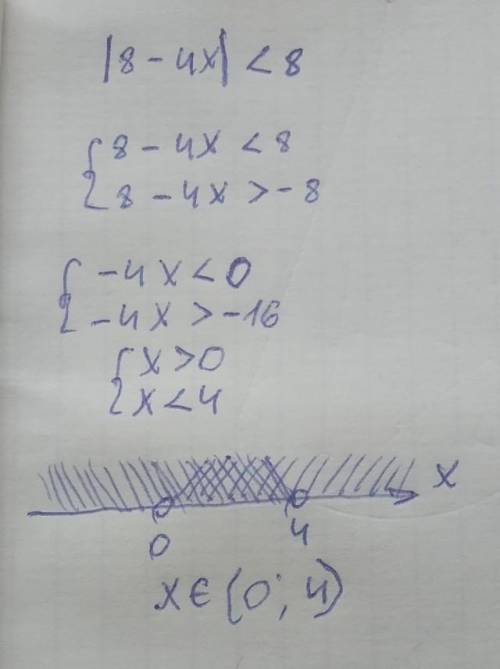 |8 - 4x| < 8
{ 8 - 4x < 8
{ 8 - 4x > -8
{ -4x < 0
{ -4x > -16
{ x > 0
{ x < 4
x
0 4
x ∈ (0; 4)